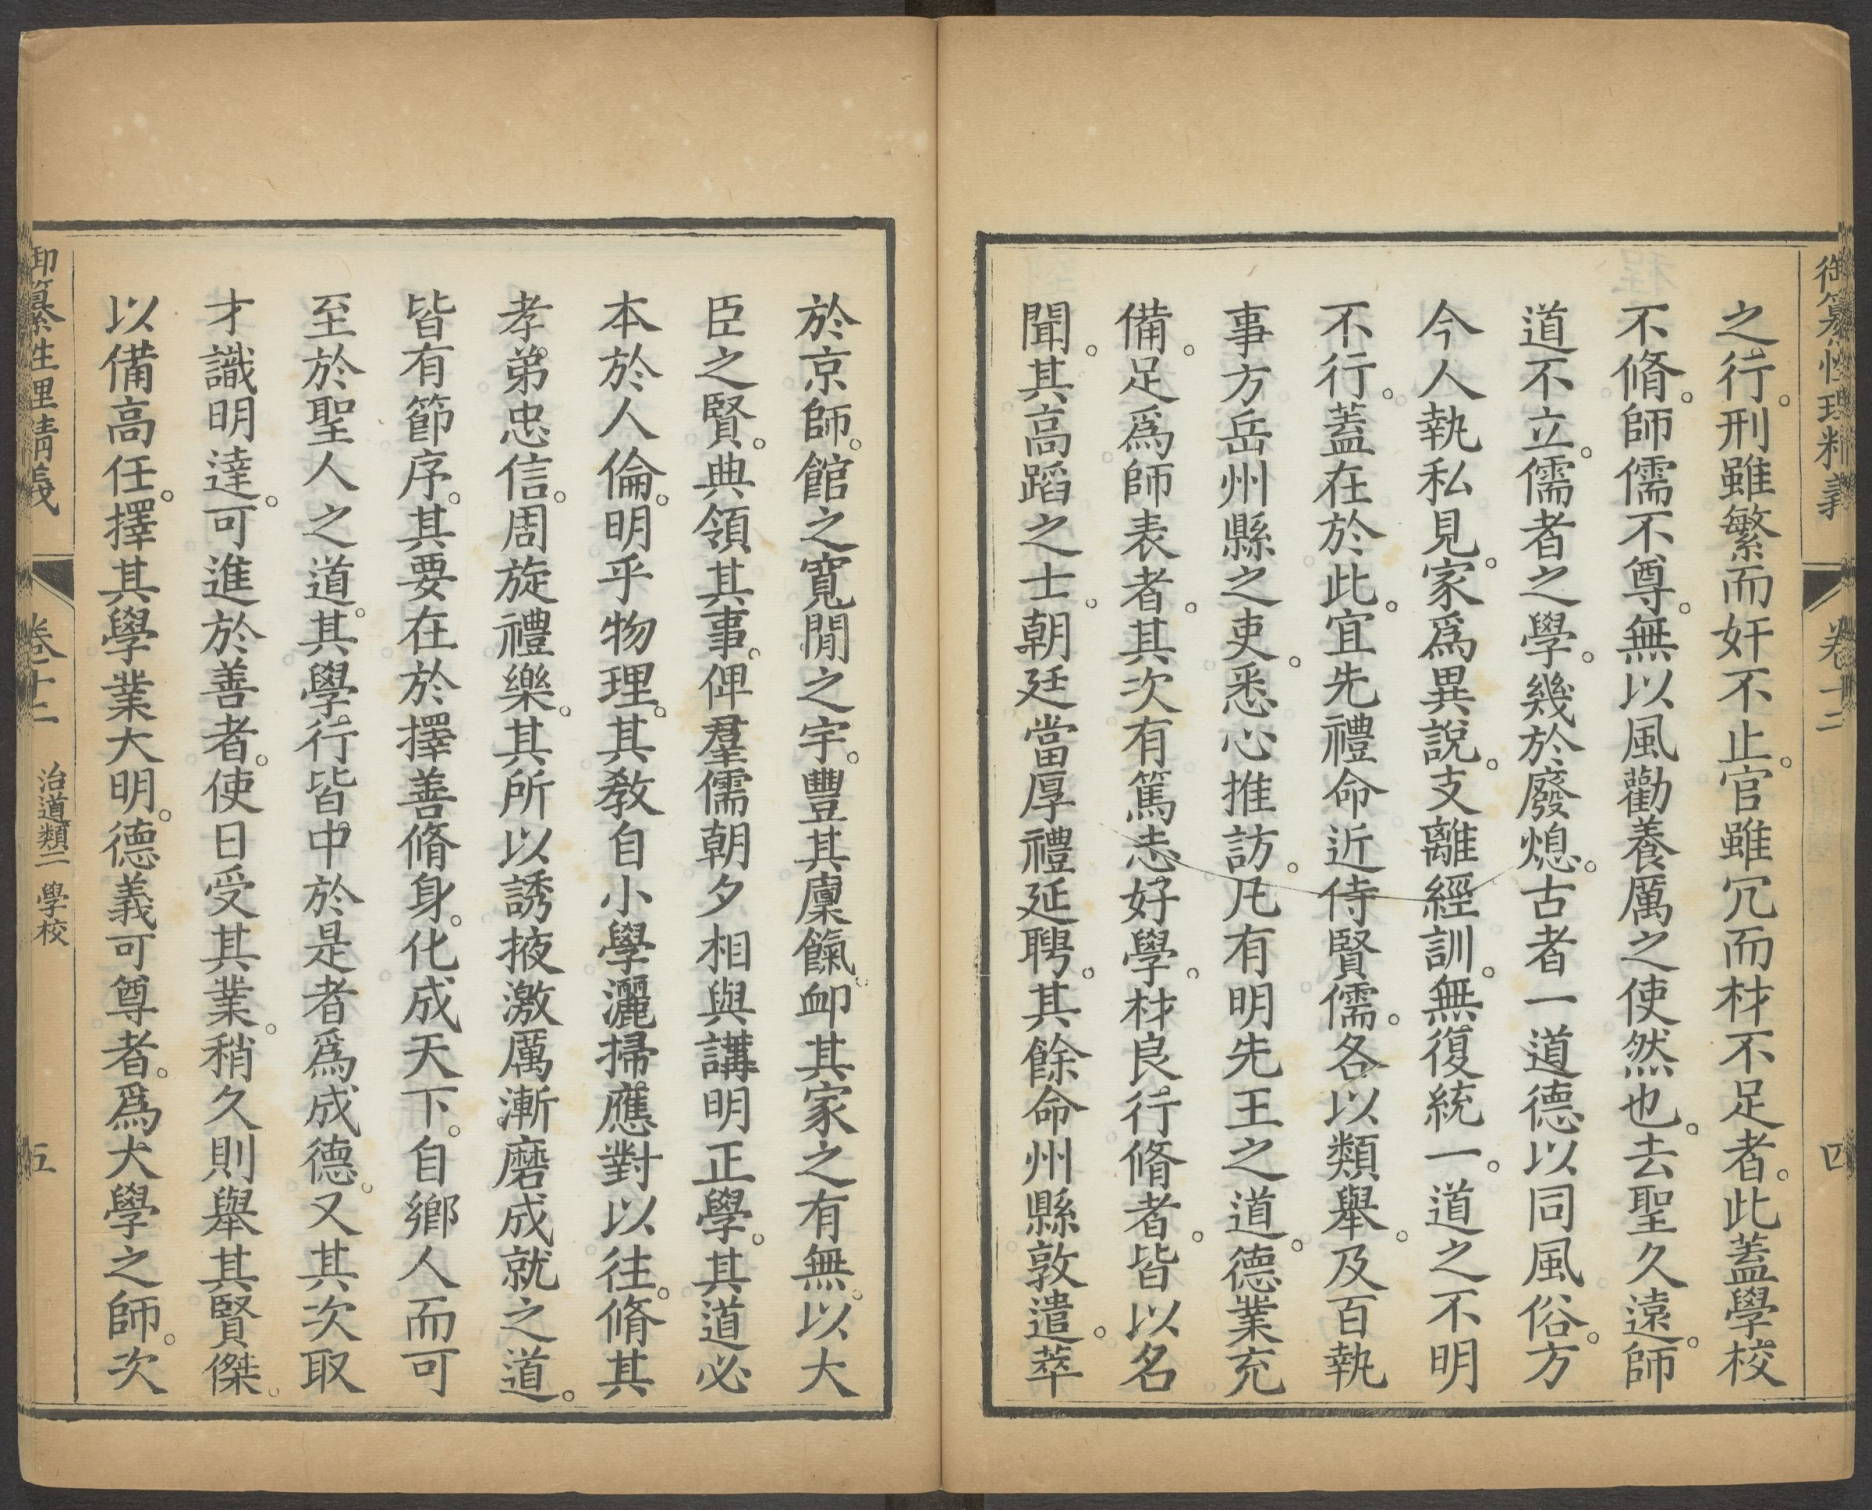 御纂性理精義
卷十二
四
之行。刑雖繁而奸不止。官雖冗而材不足者。此蓋學校
不脩。師儒不尊。無以風勸養厲之使然也。去聖久遠。師
道不立。儒者之學。幾於廢熄。古者一道德以同風俗。方
今人執私見。家爲異說。支離經訓。無復統一。道之不明
不行。蓋在於此。宜先禮命近侍賢儒。各以類舉。及百執
事方岳州縣之吏。悉心推訪。凡有明先王之道。德業充
備。足爲師表者。其次有篤志好學。材良行脩者。皆以名
聞。其高蹈之士。朝廷當厚禮延聘。其餘命州縣敦遣。萃
於京師。館之寬閒之宇。豐其廩餼。卹其家之有無。以大
臣之賢。典領其事。俾羣儒朝夕相與講明正學。其道必
本於人倫。明乎物理。其教自小學灑掃應對以往。脩其
孝弟忠信。周旋禮樂。其所以誘掖激厲漸磨成就之道。
皆有節序。其要在於擇善脩身。化成天下。自鄉人而可
至於聖人之道。其學行皆中於是者爲成德。又其次取
才識明達。可進於善者。使日受其業。稍久則舉其賢傑。
以備高任。擇其學業大明。德義可尊者。爲大學之師。次
御纂性理精義
卷十二
治道類二 學校
五